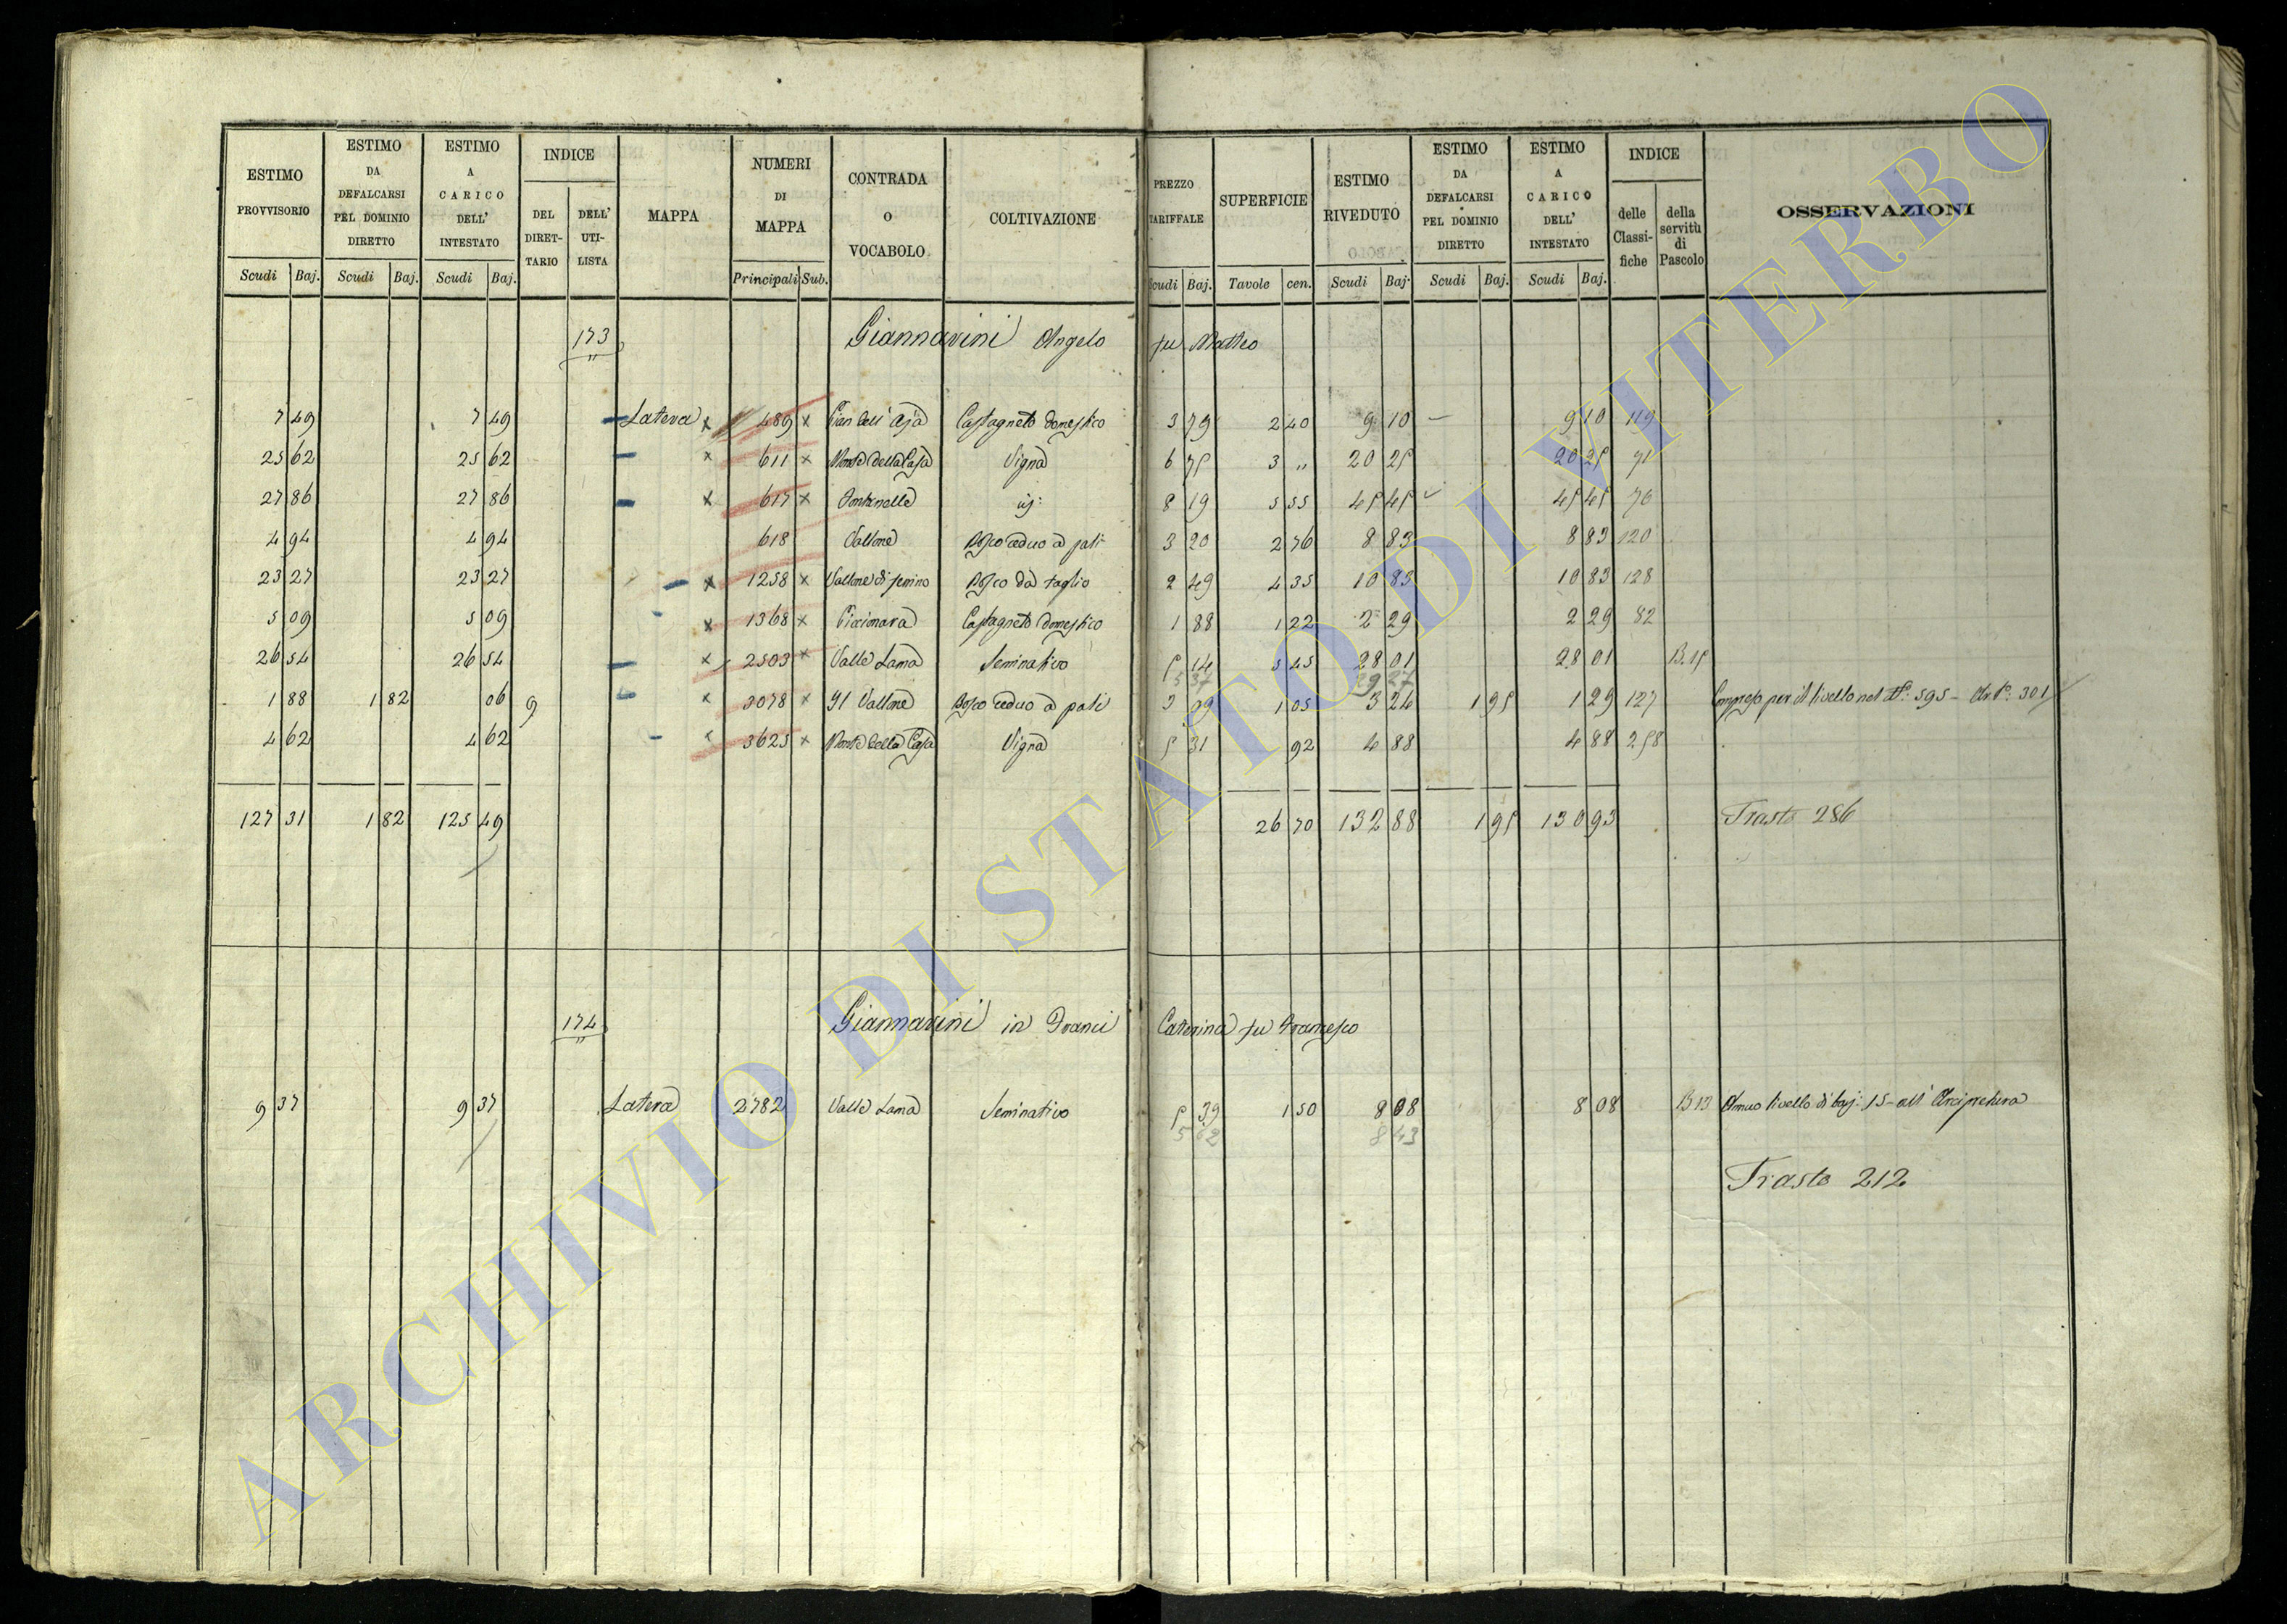 ESTIMO PROVVISORIO | ESTIMO DA DEFALCARSI PEL DOMINIO DIRETTO | ESTIMO A CARICO DELL' INTESTATO | INDICE | MAPPA | NUMERI DI MAPPA | CONTRADA O VOCABOLO | COLTIVAZIONE | PREZZO TARIFFALE | SUPERFICIE | ESTIMO RIVEDUTO | ESTIMO DA DEFALCARSI PEL DOMINIO DIRETTO | ESTIMO A CARICO DELL' INTESTATO | INDICE | OSSERVAZIONI
DEL DIRETTARIO | DELL' UTILISTA | delle Classifiche | della servitù di Pascolo
Scudi | Baj. | Scudi | Baj. | Scudi | Baj. | Principali | Sub. | Scudi | Baj. | Tavole | cen. | Scudi | Baj. | Scudi | Baj. | Scudi | Baj.
173 Giannarini Angelo fu Matteo
7 49 | 7 49 | Latera x | 489 x | Pian dell' Aja | Castagneto domestico | 3 79 | 2 40 | 9 10 | 9 10 | 119
25 62 | 25 62 | x | 611 x | Monte della Casa | Vigna | 6 75 | 3 " | 20 25 | 20 25 | 71
27 86 | 27 86 | x | 617 x | Fontanella | id: | 8 19 | 5 55 | 45 45 | 45 45 | 76
4 94 | 4 94 | 618 | Vallone | Bosco ceduo a pali | 3 20 | 2 76 | 8 83 | 8 83 | 120
23 27 | 23 27 | x | 1258 x | Vallone di | Bosco da taglio | 2 49 | 4 35 | 10 83 | 10 83 | 128
5 09 | 5 09 | x | 1368 x | Castagneto domestico | 1 88 | 1 22 | 2 29 | 2 29 | 82
26 54 | 26 54 | x | 2503 x | Valle Lama | Seminativo | 5 14 | 5 45 | 28 01 | 28 01 | 13.15
5 37 | 29 27
1 88 | 1 82 | 06 | 9 | x | 3078 x | Il Vallone | Bosco ceduo a pali | 3 09 | 1 05 | 3 24 | 1 95 | 1 29 | 127 | Compreso per il livello nel N°: 595 - Art°: 301
4 62 | 4 62 | x | 3623 x | Monte della Casa | Vigna | 5 31 | 92 | 4 88 | 4 88 | 258
127 31 | 1 82 | 125 49 | 26 70 | 132 88 | 1 95 | 130 93 | Trasto 286
174 Giannarini in Franci Caterina fu Francesco
9 37 | 9 37 | Latera | 2782 | Valle Lama | Seminativo | 5 39 | 1 50 | 8 08 | 8 08 | 13 13 | Annuo livello di baj: 15 - all' Arcipretura
5 62 | 8 43
Trasto 212
ARCHIVIO DI STATO DI VITERBO